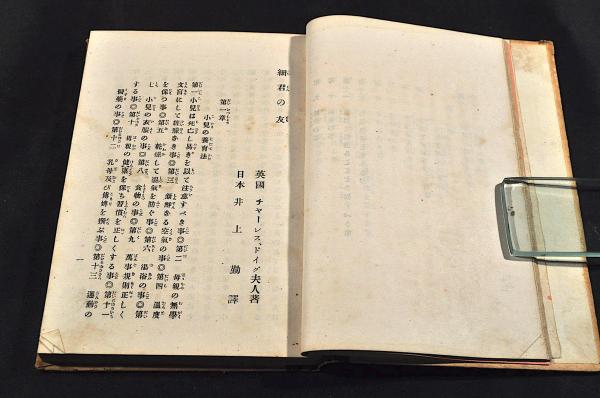 細君の友
英國 チャーレス、ドイグ夫人著
日本 井上 勤 譯
第一章
小兒の養育法
第一 小兒は死亡し易きを以て注意すべき事◎第二 母親の無學
文盲にして慈緣なき事◎第三 新鮮なる空氣の事◎第四 溫度
を保つ事◎第五 乾燥して濕氣を防ぐ事◎第六 湯術の事◎第
七 小兒の衣服の事◎第八 食物の事◎第九 萬事規則正しく
する事◎第十 母親の健康を保ち習慣を正しくする事◎第十一
桐藥の事◎第十二 乳母及び傭婢を撰ぶ事◎第十三 運動の
一